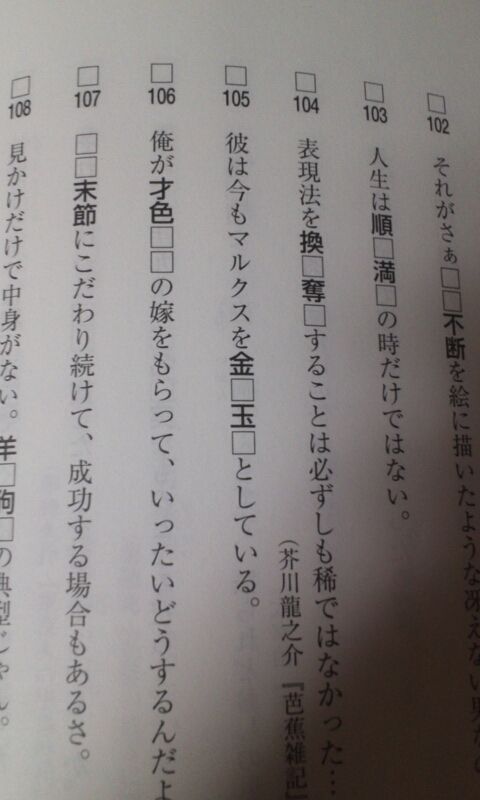 □102 それがさぁ□□不断を絵に描いたような冴えない男
□103 人生は順□満□の時だけではない。
□104 表現法を換□奪□することは必ずしも稀ではなかった…
（芥川龍之介『芭蕉雑記』
□105 彼は今もマルクスを金□玉□としている。
□106 俺が才色□□の嫁をもらって、いったいどうするんだよ
□107 □□末節にこだわり続けて、成功する場合もあるさ。
□108 見かけだけで中身がない。羊□狗□の典型じゃん。